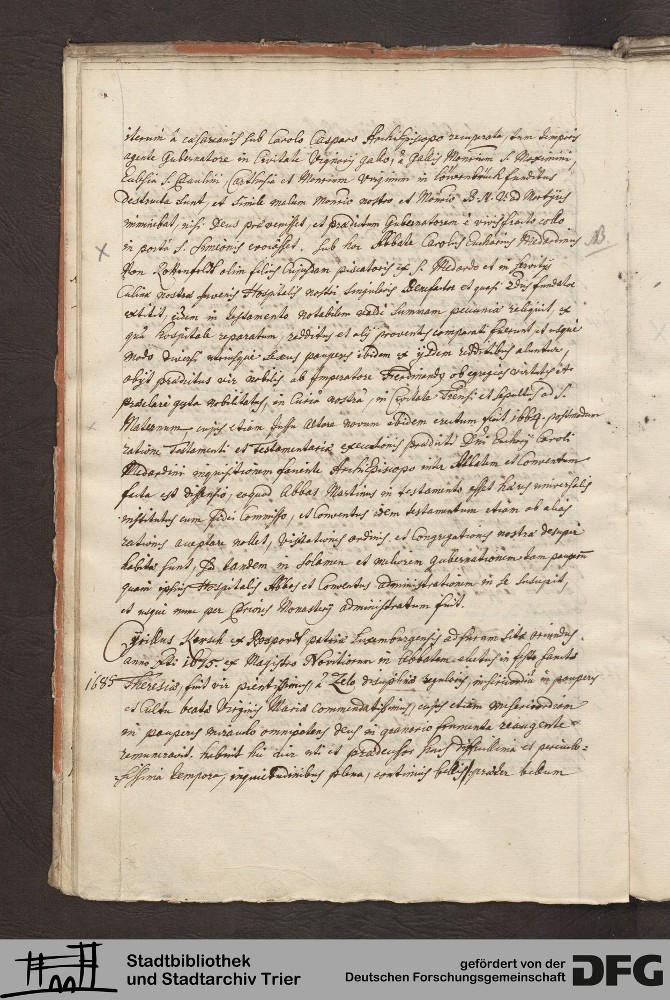 iterum à cæsareanis sub Carolo Casparo Archiepiscopo recuperata, tum temporis
agente Gubernatore in Civitate Vignory gallo, à Gallis Monrium S. Maximini,
Ecclesia S. Paulini, Carthusia et Monrium Virginum in Löwenbrück funditus
destructa sunt, et simile malum Monrio nostro et Monrio B. M. V. ad Martyres
imminebat, nisi Deus prævenisset, et prædictum Gubernatorem è vivis fracto collo
in porta S. Simeonis evocasset. Sub hoc Abbate Carolus Eucharius Medardinus
Von Rottenfeldt olim filius cujusdam piscatoris ex S. Medardo et in servitijs
Culinæ nostræ Juvenis Hospitalis nostri singularis Benefactor et quasi 2dus fundator
extitit, eidem in testamento notabilem valdè summam pecuniæ reliquit, ex
quâ hospitale reparatum, redditus et alij proventus comparati fuerunt, ut usque
modo diversi utriusque sexus pauperes ibidem ex ijsdem redditibus aluntur,
obijt prædictus vir nobilis ab Imperatore Ferdinando ob egregias virtutes et
præclare gesta nobilitatus, in Curiâ nostrâ, in Civitate Trensi et sepultus ad S.
Maternum cujus etiam jussu Altare novum ibidem erectum fuit 1664. postmodum
ratione Testamenti et testamentariæ executionis prædicti Dni Eucharij Caroli
Medardini inquisitionem faciente Archiepiscopo inter Abbatem et Conventum
facta est dissensio, eoquod Abbas Martinus in testamento esset hæres universalis
institutus cum fidei Commisso, et Conventus idem testamentum etiam ob alias
rationes acceptare nollet, Visitationes ordinis et Congregationis nostræ desuper
habitæ sunt, sed tandem in solamen et meliorem gubernationem tam pauperum
quam ipsius Hospitalis Abbas et Conventus administrationem in se suscepit,
et usque nunc per Priores Monasterij administratum fuit.
Cyrillus Kersch ex Rosport patriâ Luxemburgensis ad suram sitâ oriundus,
anno Xti 1675. ex Magistro Novitiorum in Abbatem electus in festo sanctæ
1685 Theresiæ, fuit vir pientissimus, à Zelo disciplinæ regularis, misericordiâ in pauperes
et Cultu beatæ Virginis Mariæ commendatissimus, cujus etiam misericordiam
in pauperes miraculo omnipotens deus in granario frumenta reaugente
remuneravit. habuit hic vir uti et prædecessor suus difficillima et periculo-
sissima tempora, inquietudinibus plena, continuis bellis, præter bellum
B.
Stadtbibliothek
und Stadtarchiv Trier
gefördert von der
Deutschen Forschungsgemeinschaft
DFG